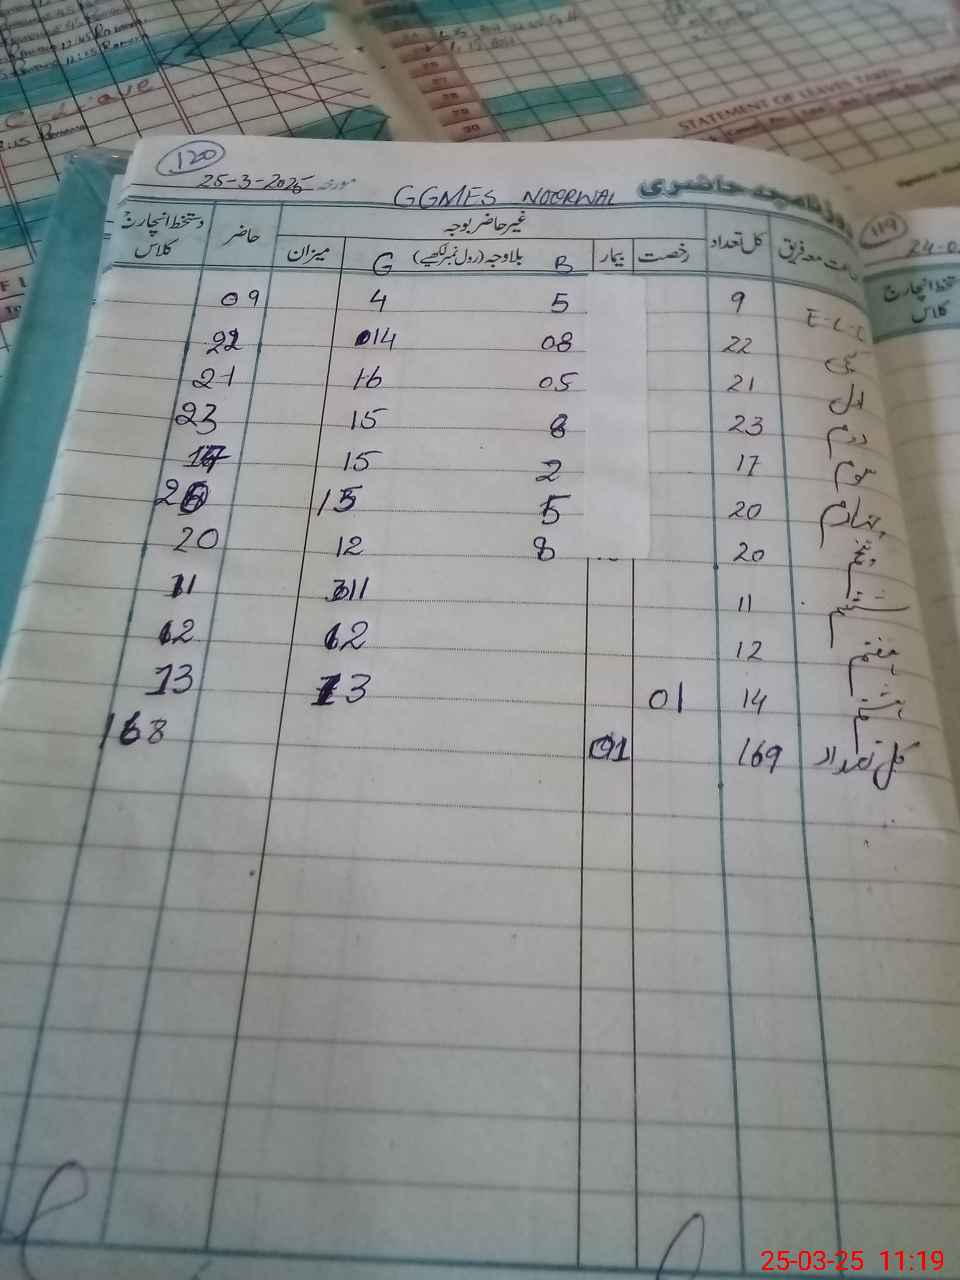 120
مورخہ 25-3-2025
GGMES NOORWAL
روزنامچہ حاضری
119
24-0
دستخط انچارج کلاس
حاضر
غیر حاضر بوجہ
میزان
G بلاوجہ (رول نمبر لکھیے) B
بیمار
رخصت
کل تعداد
جماعت معہ فریق
دستخط انچارج
کلاس
09 4 5 9 E-C-E
22 014 08 22 کچی
21 16 05 21 اول
23 15 8 23 دوم
17 15 2 17 سوم
20 15 5 20 چہارم
20 12 8 20 پنجم
11 11 11 ششم
12 12 12 ہفتم
13 13 01 14 ہشتم
168 01 169 کل تعداد
STATEMENT OF LEAVES TAKEN
29
30
25-03-25 11:19